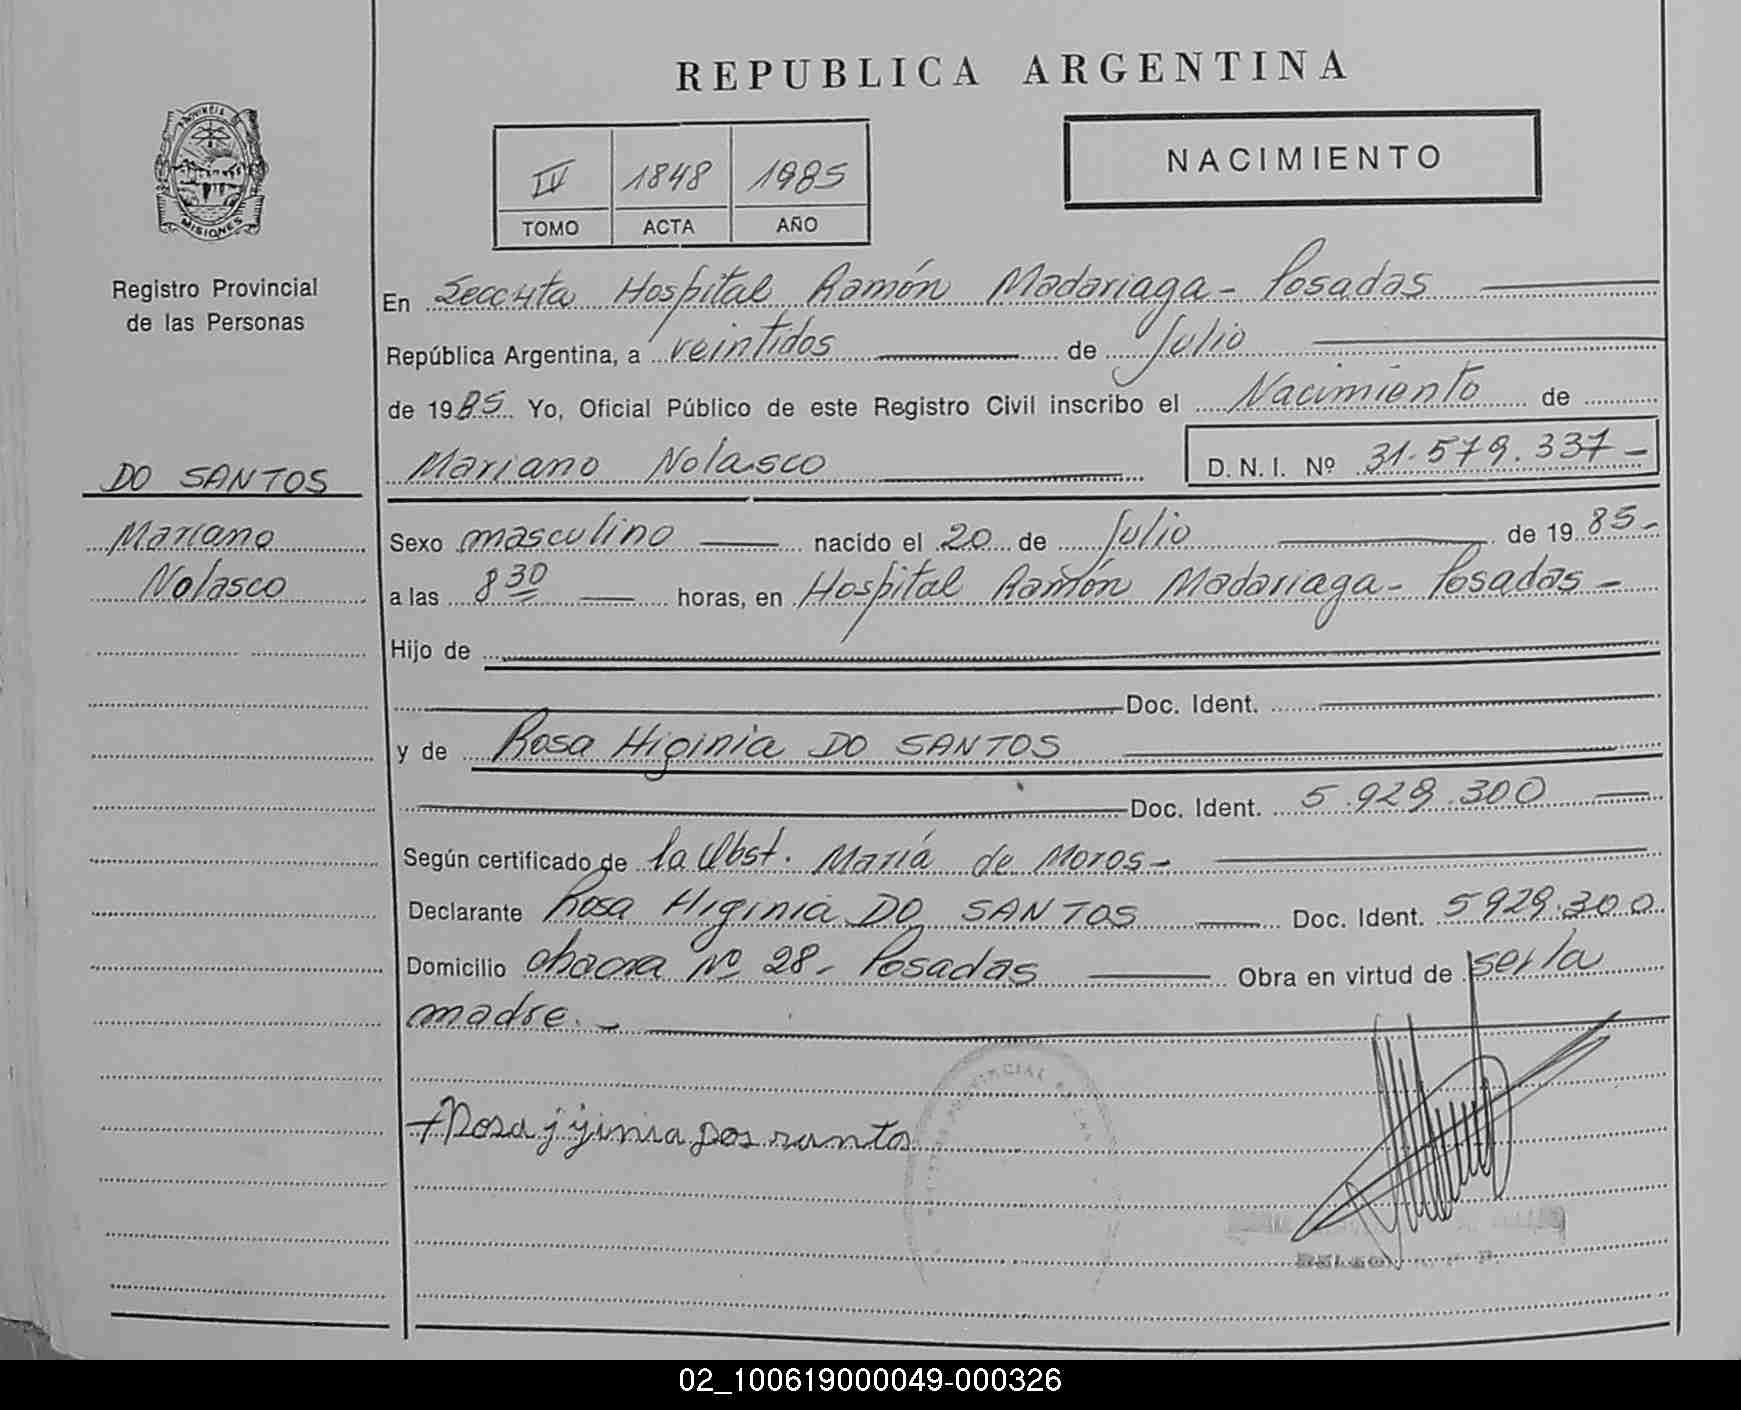 REPUBLICA ARGENTINA
PROVINCIA
MISIONES
Registro Provincial
de las Personas
IV 1848 1985
TOMO ACTA AÑO
NACIMIENTO
En Hospital Ramón Madariaga - Posadas
República Argentina, a veintidos de Julio
de 1985 Yo, Oficial Público de este Registro Civil inscribo el Nacimiento de
Mariano Nolasco D.N.I. Nº 31.579.337-
DO SANTOS
Mariano
Nolasco
Sexo masculino nacido el 20 de Julio de 1985-
a las 8 30 horas, en Hospital Ramón Madariaga - Posadas -
Hijo de
Doc. Ident.
y de Rosa Higinia DO SANTOS
Doc. Ident. 5.929.300
Según certificado de la Obst. María de Moros -
Declarante Rosa Higinia DO SANTOS Doc. Ident. 5929.300
Domicilio chacra Nº 28 - Posadas Obra en virtud de ser la
madre. -
Rosa jijinia dos santos
02_100619000049-000326